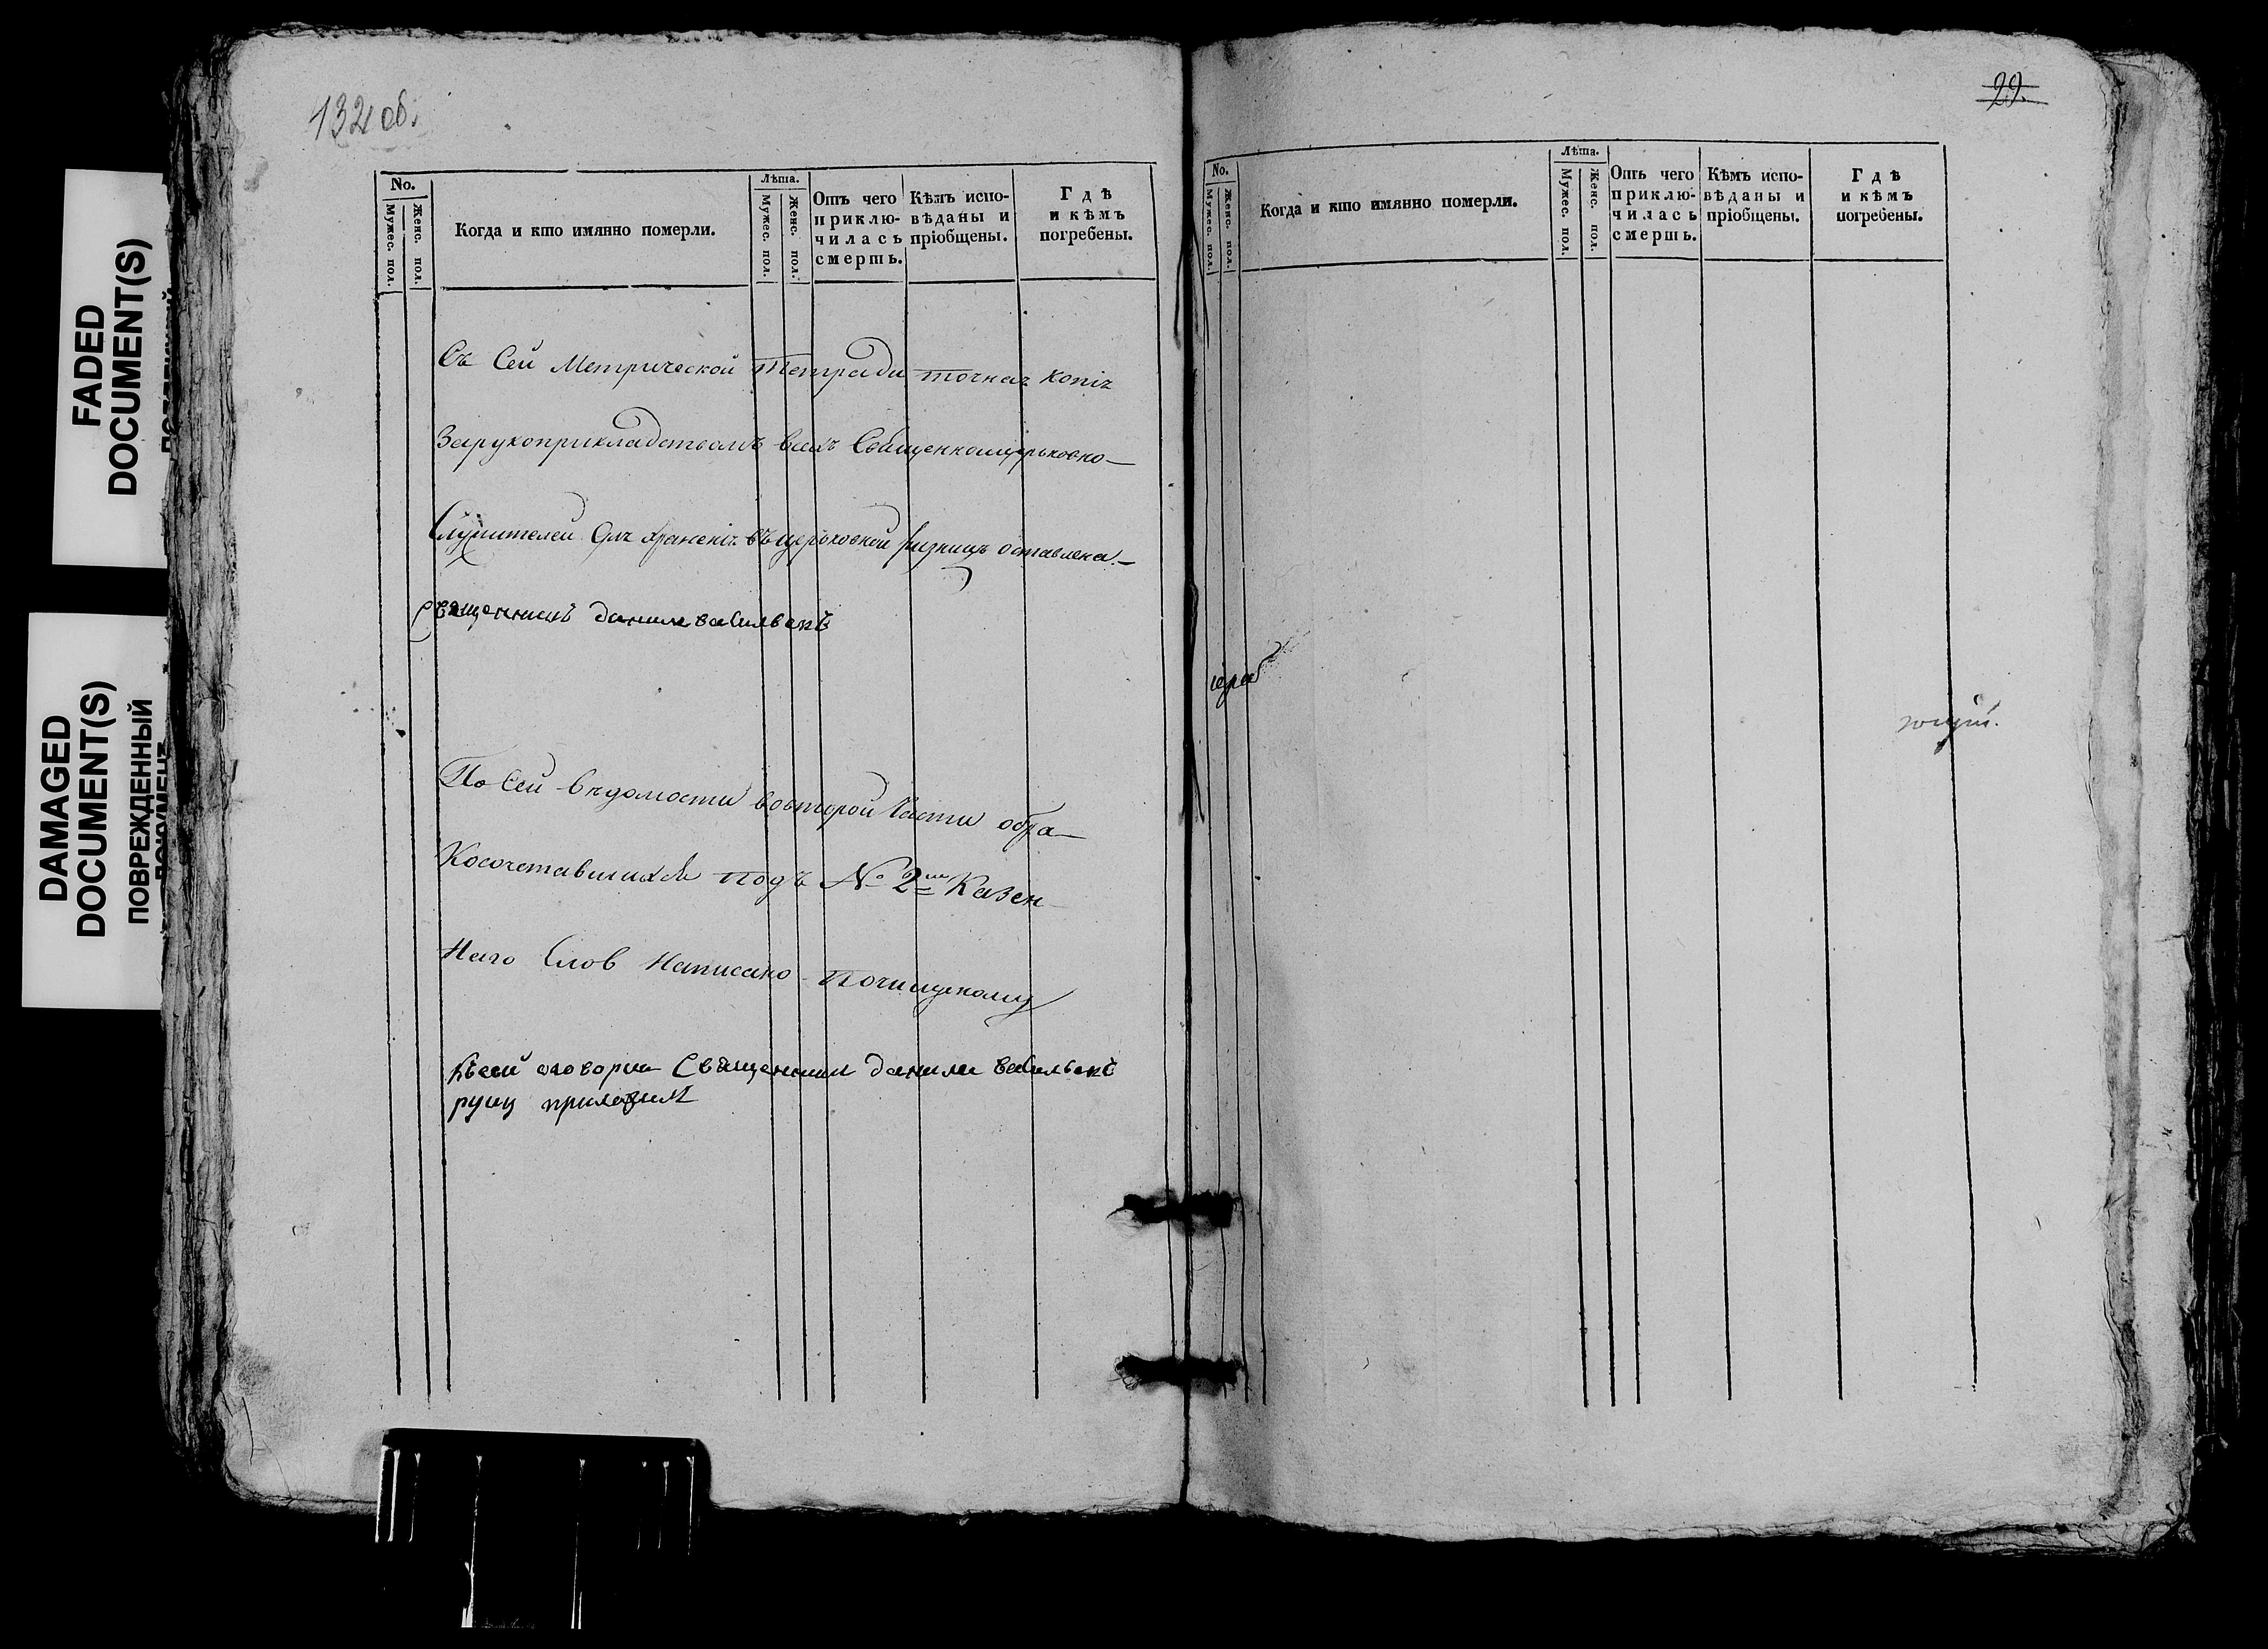 FADED
DOCUMENT(S)
DAMAGED
DOCUMENT(S)
ПОВРЕЖДЕННЫЙ
ДОКУМЕНТ
132 об.
No.
Мужес. пол.
Женс. пол.
Когда и кто имянно померли.
Лѣта.
Мужес. пол.
Женс. пол.
Отъ чего приклю-
чилась смерть.
Кѣмъ испо-
вѣданы и
пріобщены.
Гдѣ
и кѣмъ
погребены.
Съ Сей Метрической Тетради точная копія
Зарукоприкладствомъ всехъ Священноцерьковно-
Служителей для хранения въ церьковной ризницѣ оставлена.-
Священникъ данила
По Сей вѣдомости вовторой Части обра-
Косочетавшихся подъ № 2м Казен-
Наго Слов Написано Почищеному
Ксей оговорки Священникъ данила
руку приложилъ
29.
No.
Мужес. пол.
Женс. пол.
Когда и кто имянно померли.
Лѣта.
Мужес. пол.
Женс. пол.
Отъ чего
приклю-
чилась
смерть.
Кѣмъ испо-
вѣданы и
пріобщены.
Гдѣ
и кѣмъ
погребены.